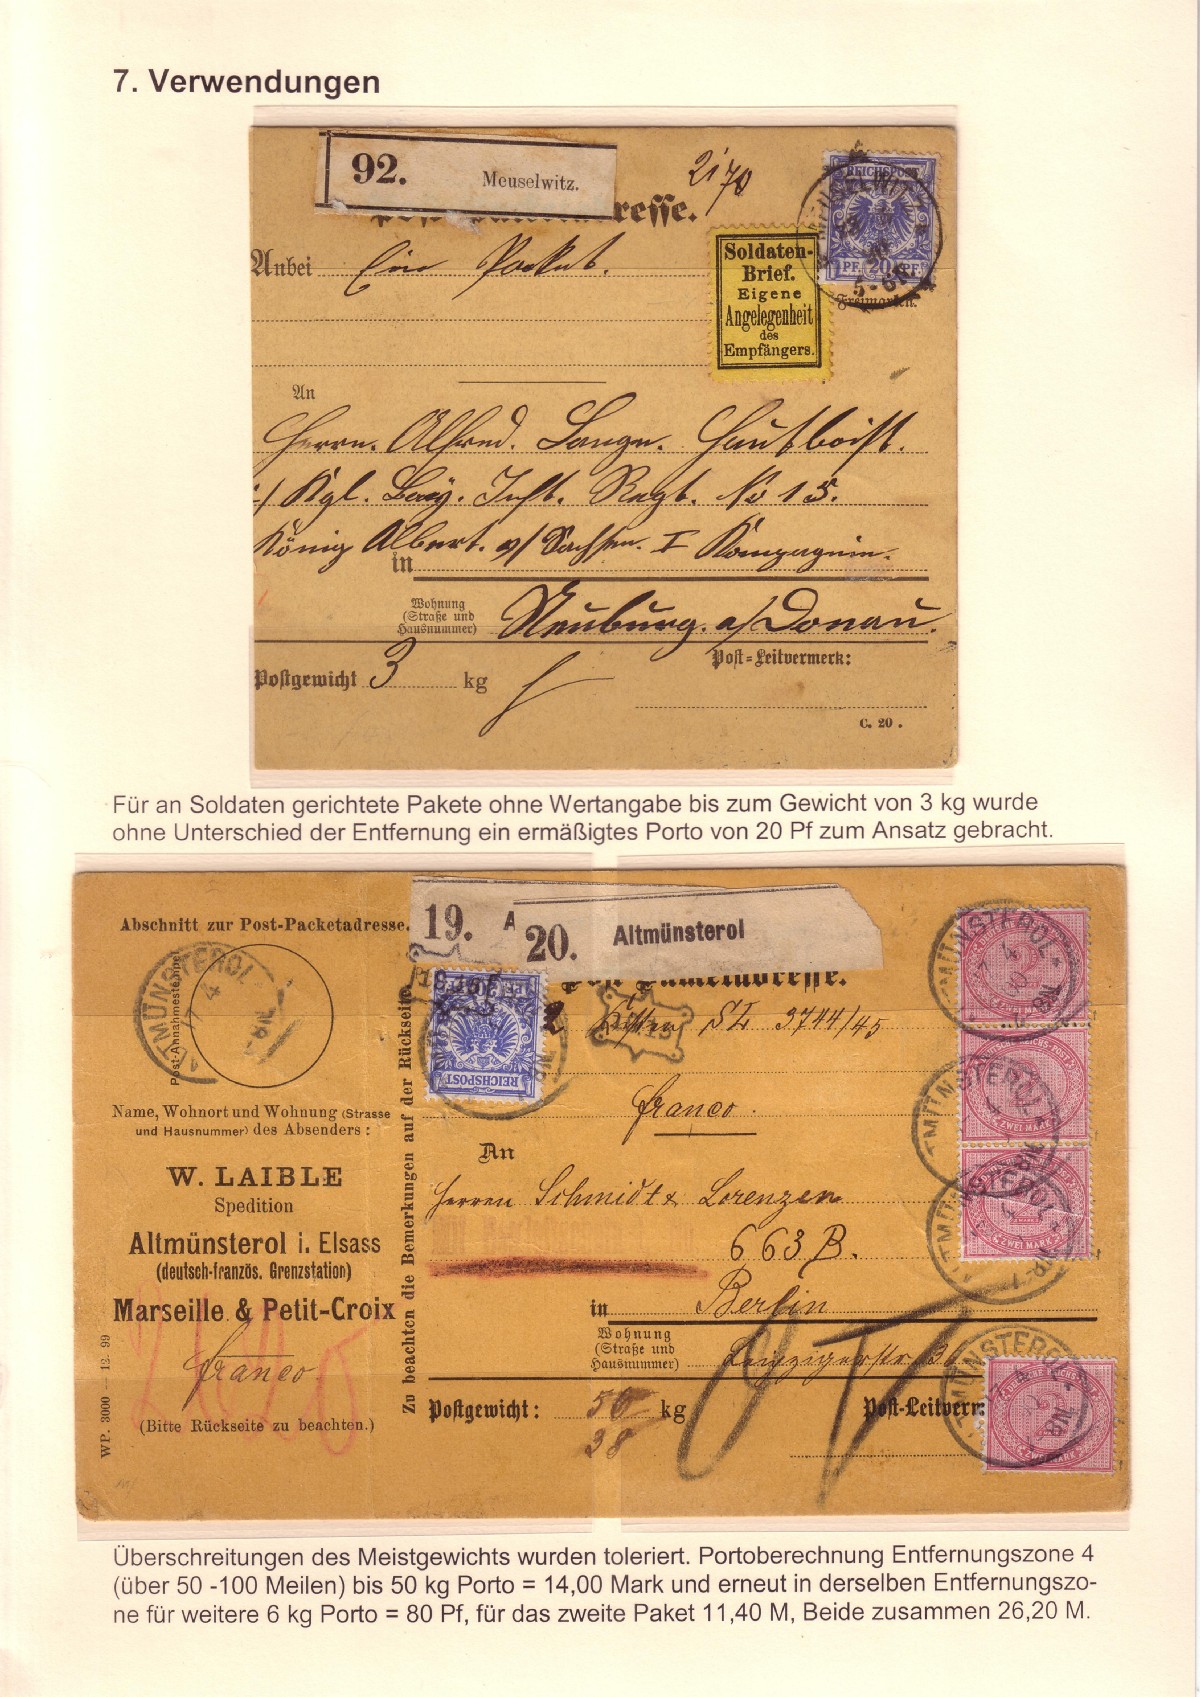 7. Verwendungen
92. Meuselwitz.
resse.
REICHSPOST
PF. 20 PF.
5-6N
Freimarken.
Anbei Ein Packet.
Soldaten-
Brief.
Eigene
Angelegenheit
des
Empfängers.
An
Herrn. Alfred. Lange. Hautboist.
Kgl. Bay. Inft. Regt. No 15.
König Albert. v/ Sachsen. I Kompagnie.
in
Wohnung
(Straße und
Hausnummer)
Neuburg. a/ Donau.
Postgewicht 3 kg
Post-Leitvermerk:
C. 20.
Für an Soldaten gerichtete Pakete ohne Wertangabe bis zum Gewicht von 3 kg wurde
ohne Unterschied der Entfernung ein ermäßigtes Porto von 20 Pf zum Ansatz gebracht.
Abschnitt zur Post-Packetadresse.
19. A
20. Altmünsterol
ALTMÜNSTEROL
Post-Annahmestempel
2 Kisten SL 3744/45
REICHSPOST
franco.
Name, Wohnort und Wohnung (Strasse
und Hausnummer) des Absenders:
An
W. LAIBLE
Spedition
Altmünsterol i. Elsass
(deutsch-französ. Grenzstation)
Marseille & Petit-Croix
franco.
(Bitte Rückseite zu beachten.)
WP. 3000 — 12. 99
Zu beachten die Bemerkungen auf der Rückseite
Herren Schmidt & Lorenzen
663 B.
in Berlin
Wohnung
(Straße und
Hausnummer)
Leipzigerstr 36
Postgewicht: 56 kg
38
Post-Leitverm
ZWEI MARK
ZWEI MARK
ZWEI MARK
Überschreitungen des Meistgewichts wurden toleriert. Portoberechnung Entfernungszone 4
(über 50 -100 Meilen) bis 50 kg Porto = 14,00 Mark und erneut in derselben Entfernungszo-
ne für weitere 6 kg Porto = 80 Pf, für das zweite Paket 11,40 M, Beide zusammen 26,20 M.